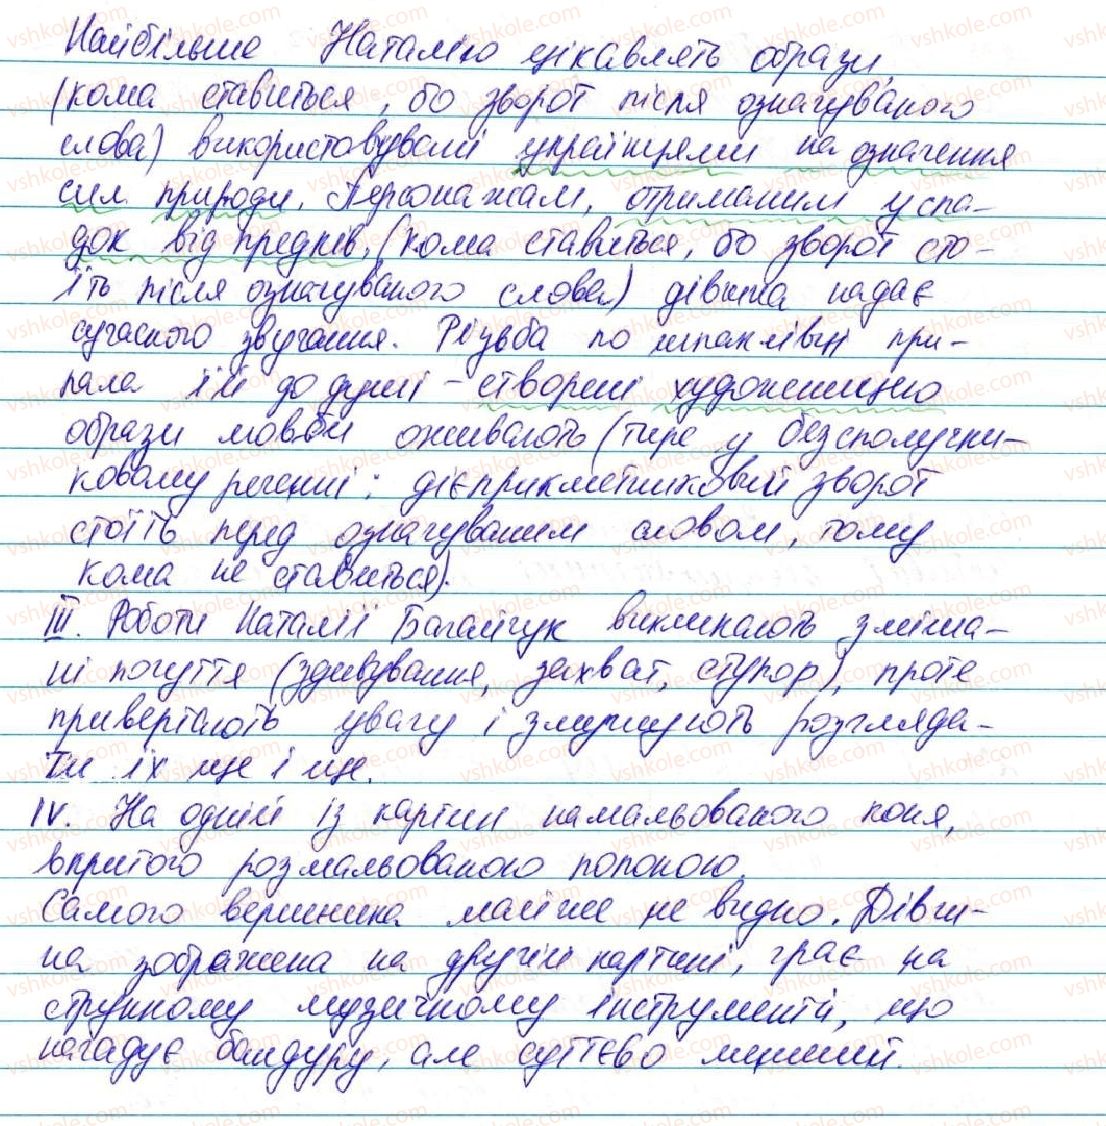 Найбільше Наталію цікавлять образи,
(кома ставиться, бо зворот після означуваного
слова) використовувані українцями на означення
сил природи. Персонажам, отриманим у спа-
док від предків, (кома ставиться, бо зворот сто-
їть після означуваного слова) дівчина надає
сучасного звучання. Різьба по шпаклівці при-
пала їй до душі - створені художницею
образи мовби оживають (тире у безсполучни-
ковому реченні; дієприкметниковий зворот
стоїть перед означуваним словом, тому
кома не ставиться).
III. Роботи Наталії Багайчук викликають зміша-
ні почуття (здивування, захват, ступор), проте
привертають увагу і змушують розгляда-
ти їх ще і ще.
IV. На одній із картин намальованого коня,
вкритого розмальованою попоною.
Самого вершника майже не видно. Дівчи-
на зображена на другій картині, грає на
струнному музичному інструменті, що
нагадує бандуру, але суттєво менший.